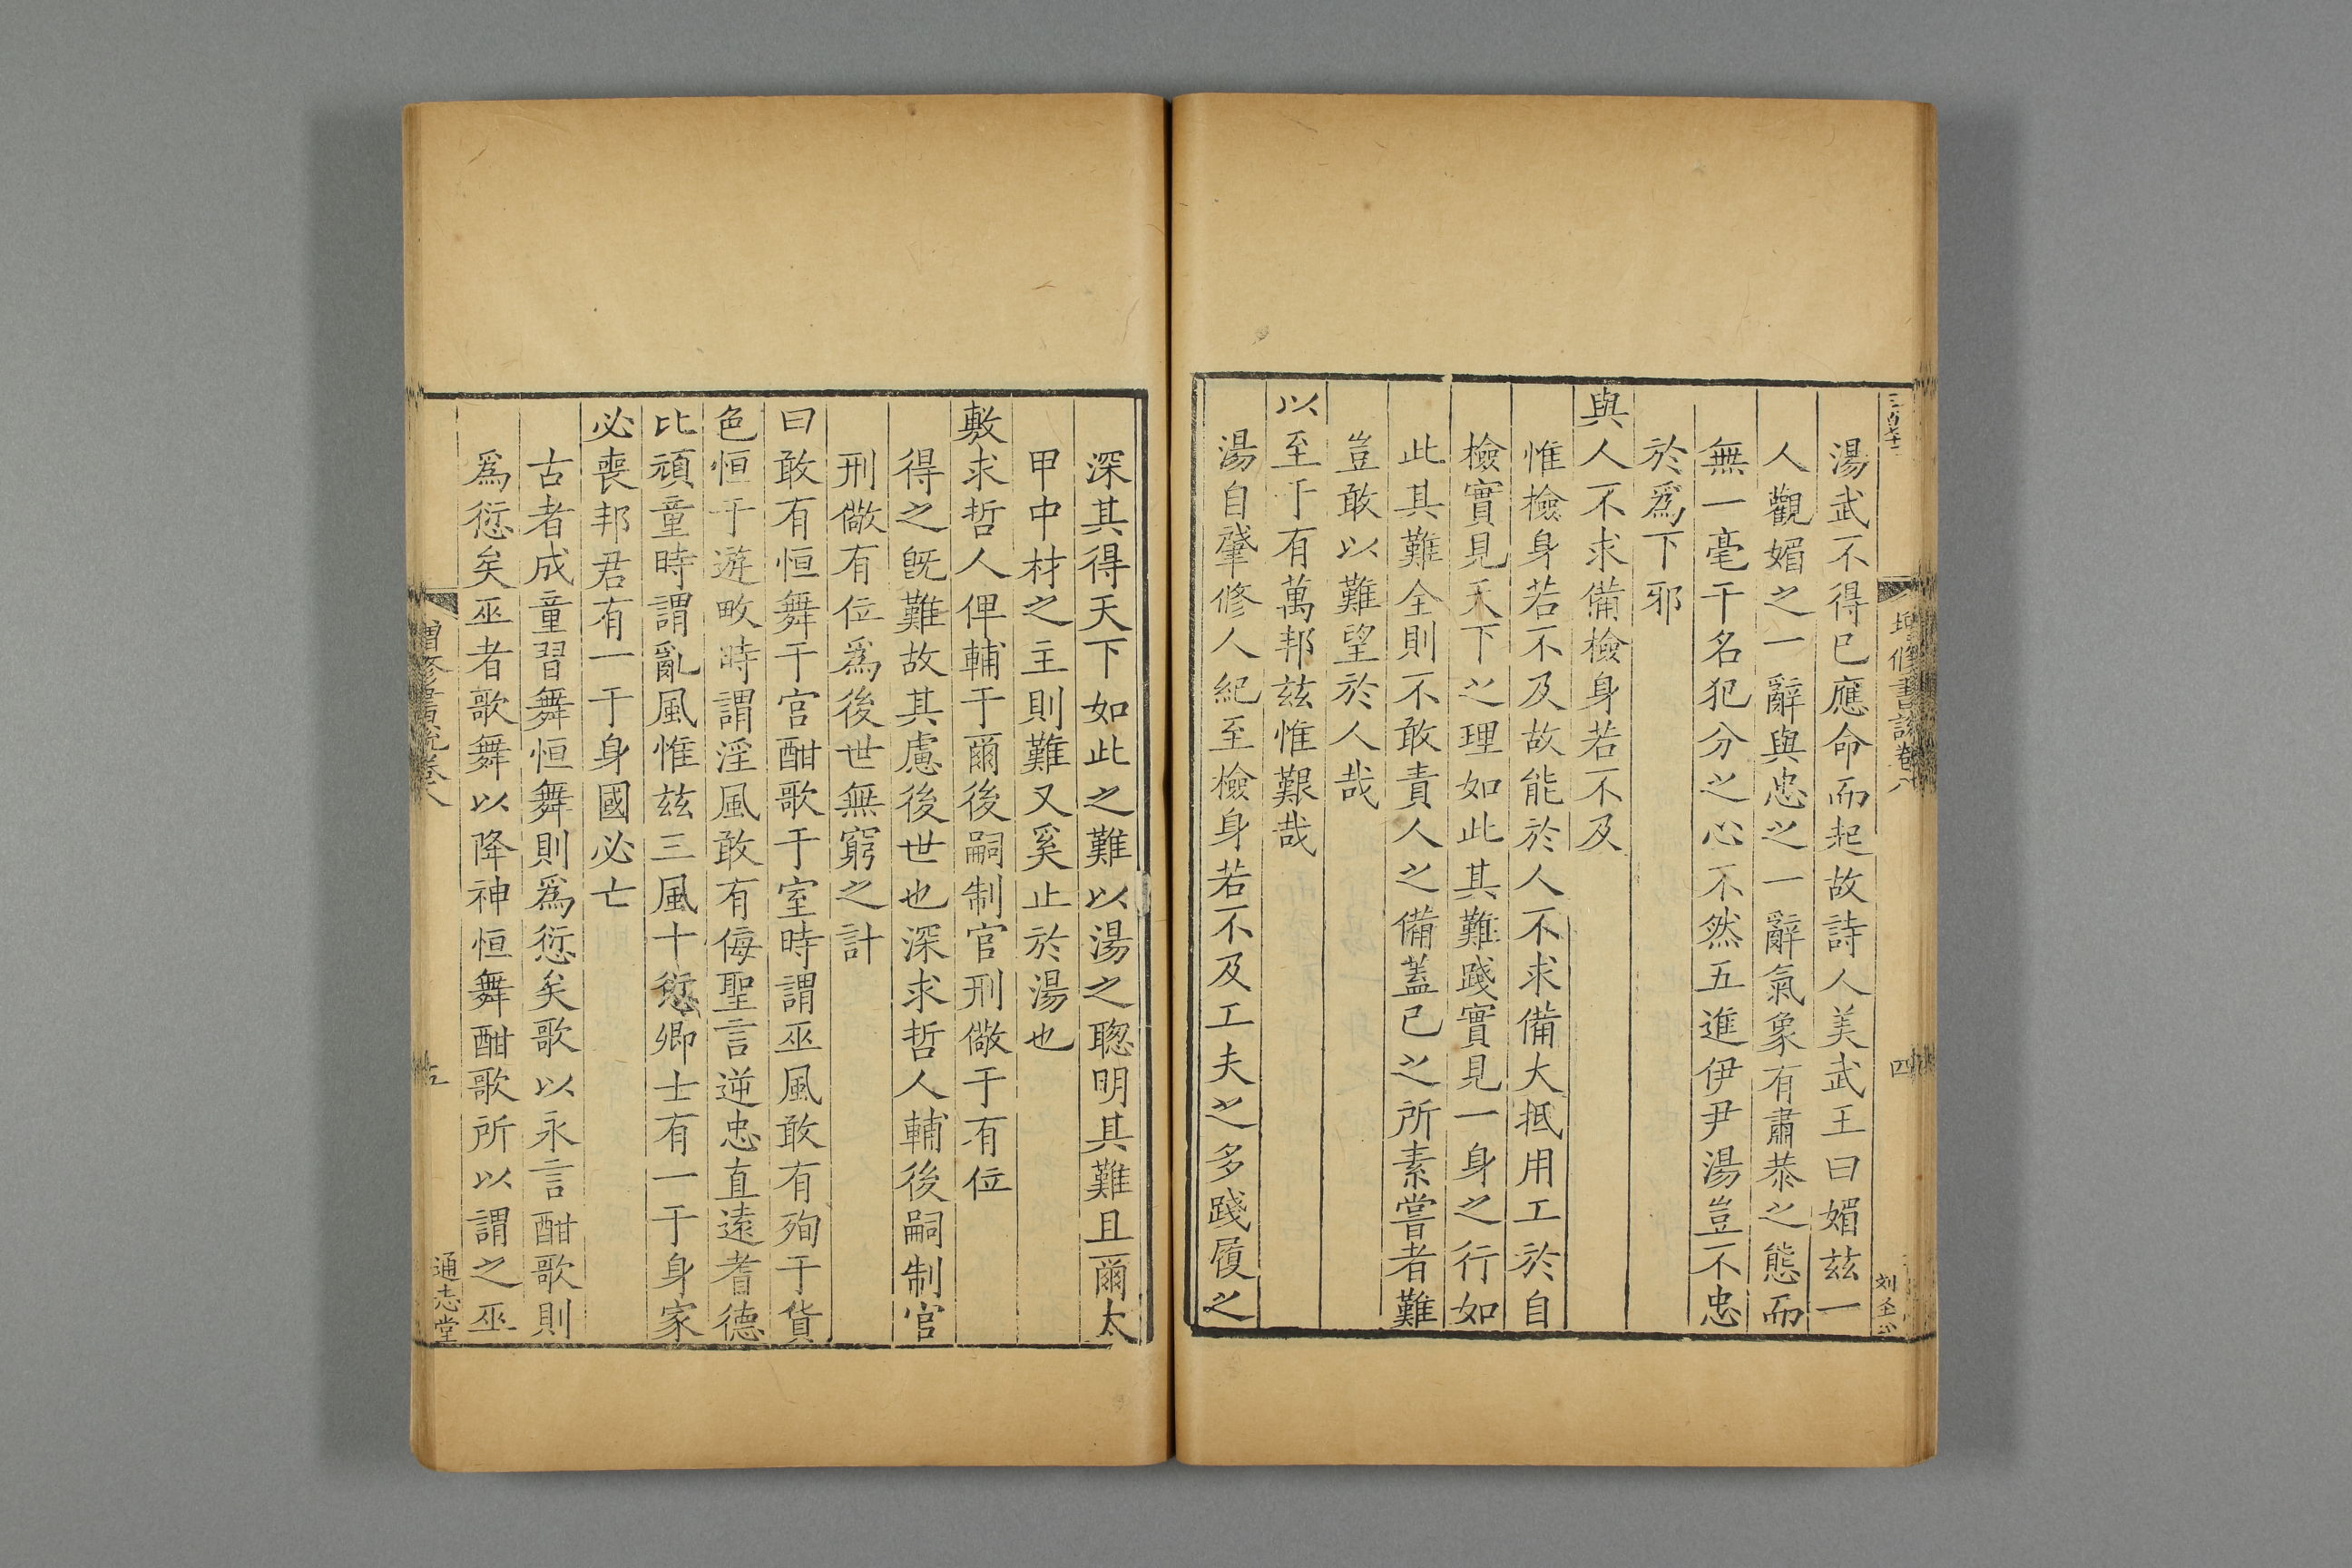 湯武不得已應命而起故詩人美武王曰媚兹一
人觀媚之一辭與忠之一辭氣象有肅恭之態而
無一毫干名犯分之心不然五進伊尹湯豈不忠
於爲下邪
與人不求備檢身若不及
惟檢身若不及故能於人不求備大抵用工於自
檢實見天下之理如此其難踐實見一身之行如
此其難全則不敢責人之備蓋已之所素嘗者難
豈敢以難望於人哉
以至于有萬邦兹惟艱哉
湯自肇修人紀至檢身若不及工夫之多踐履之
深其得天下如此之難以湯之聰明其難且爾太
甲中材之主則難又奚止於湯也
敷求哲人俾輔于爾後嗣制官刑儆于有位
得之旣難故其慮後世也深求哲人輔後嗣制官
刑儆有位爲後世無窮之計
曰敢有恒舞于宫酣歌于室時謂巫風敢有殉于貨
色恒于遊畋時謂淫風敢有侮聖言逆忠直遠耆德
比頑童時謂亂風惟兹三風十愆卿士有一于身家
必喪邦君有一于身國必亡
古者成童習舞恒舞則爲愆矣歌以永言酣歌則
爲愆矣巫者歌舞以降神恒舞酣歌所以謂之巫
增修書說卷八
四
增修書說卷八
五
通志堂